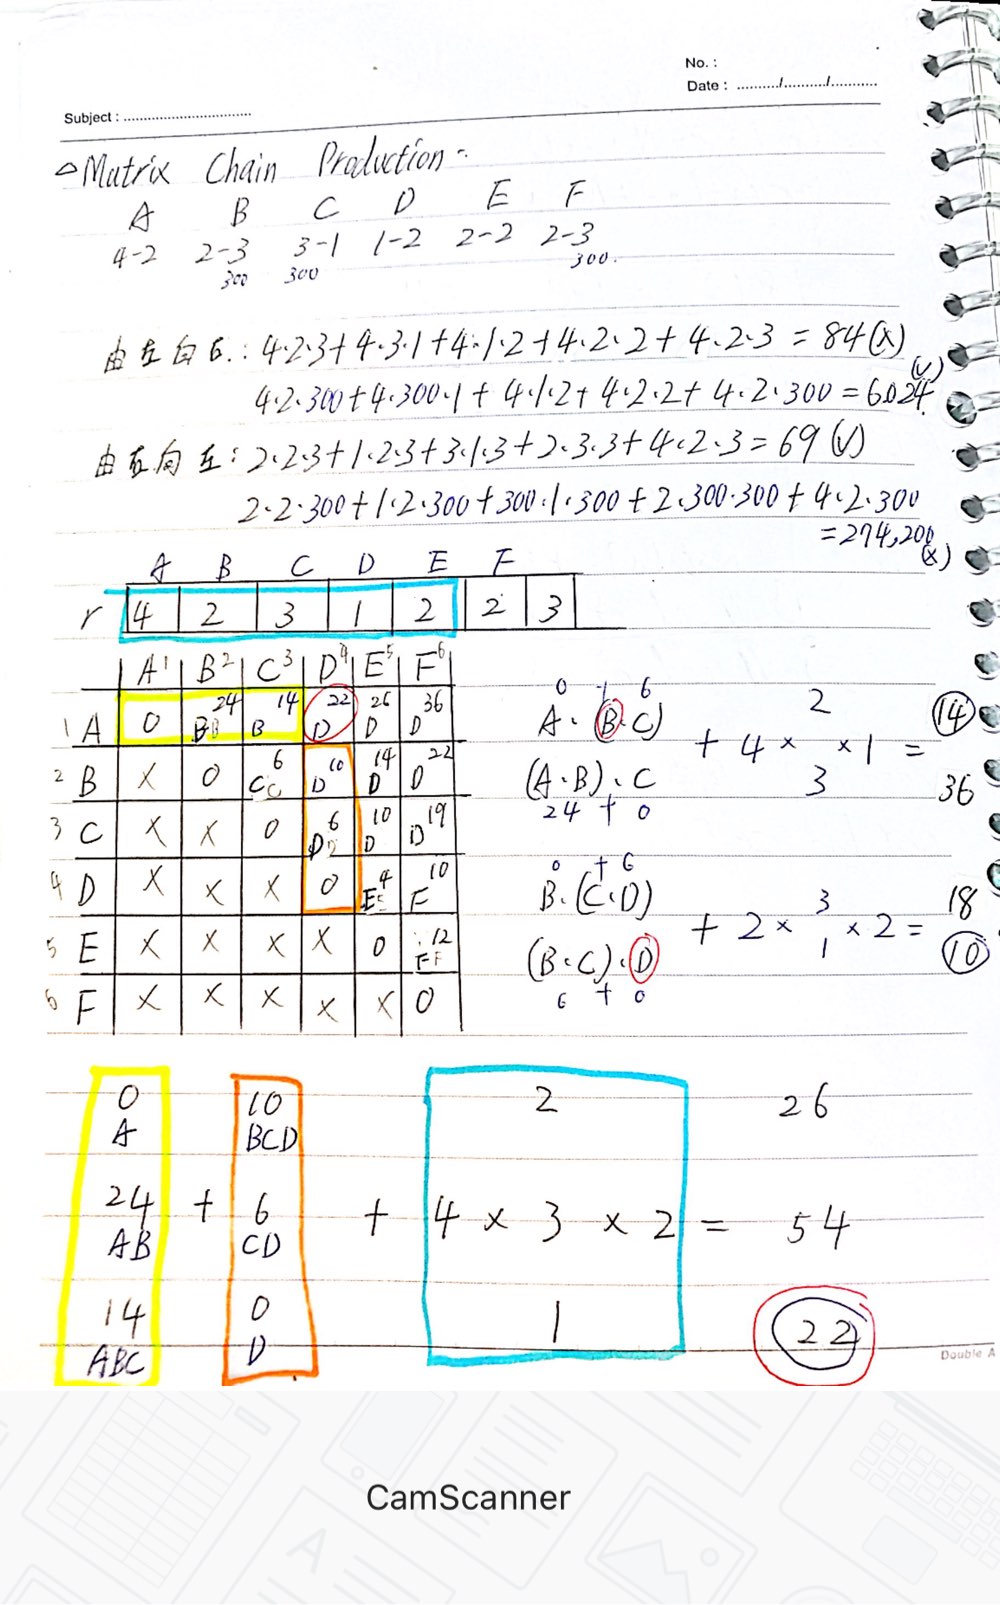 No. :
Date : ........../........../..........
Subject : ................................
△Matrix Chain Production
A B C D E F
4-2 2-3 3-1 1-2 2-2 2-3
300 300 300.
由左向右: 4·2·3+4·3·1+4·1·2+4·2·2+4·2·3=84(x)
4·2·300+4·300·1+4·1·2+4·2·2+4·2·300=6024 (v)
由右向左: 2·2·3+1·2·3+3·1·3+2·3·3+4·2·3=69(v)
2·2·300+1·2·300+300·1·300+2·300·300+4·2·300
=274,200 (x)
A B C D E F
r 4 2 3 1 2 2 3
A1 B2 C3 D4 E5 F6
1 A 0 24 B 14 B 22 D 26 D 36 D
2 B x 0 6 C 10 D 14 D 22 D
3 C x x 0 6 D 10 D 19 D
4 D x x x 0 4 E 10 F
5 E x x x x 0 12 F
6 F x x x x x 0
0 + 6
A·(B·C)
(A·B)·C
24 + 0
2
+ 4 × × 1 =
3
14
36
0 + 6
B·(C·D)
(B·C)·D
6 + 0
3
+ 2 × × 2 =
1
18
10
0 10 2 26
A BCD
24 + 6 + 4 × 3 × 2 = 54
AB CD
14 0 1 22
ABC D
Double A
CamScanner